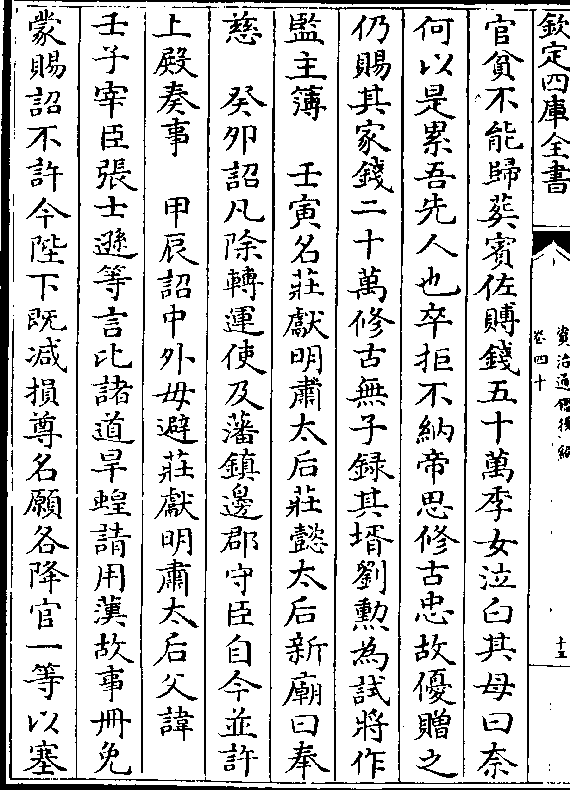 欽定四庫全書
資治通鑑後編
卷四十
十五
官貧不能歸葬賓佐賻錢五十萬季女泣白其母曰奈
何以是累吾先人也卒拒不納帝思修古忠故優贈之
仍賜其家錢二十萬修古無子録其壻劉勲為試將作
監主簿　壬寅名莊獻明肅太后莊懿太后新廟曰奉
慈　癸夘詔凡除轉運使及藩鎮邊郡守臣自今並許
上殿奏事　甲辰詔中外毋避莊獻明肅太后父諱
壬子宰臣張士遜等言比諸道旱蝗請用漢故事册免
蒙賜詔不許今陛下既减損尊名願各降官一等以塞